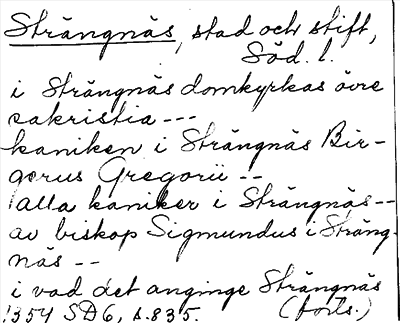 Strängnäs, stad och stift,
Söd. l.
i Strängnäs domkyrkas övre
sakristia ---
kaniken i Strängnäs Bir-
gerus Gregorii --
alla kaniker i Strängnäs --
av biskop Sigmundus i Sträng-
näs --
i vad det anginge Strängnäs
1354 SD6, s.835. (forts.)